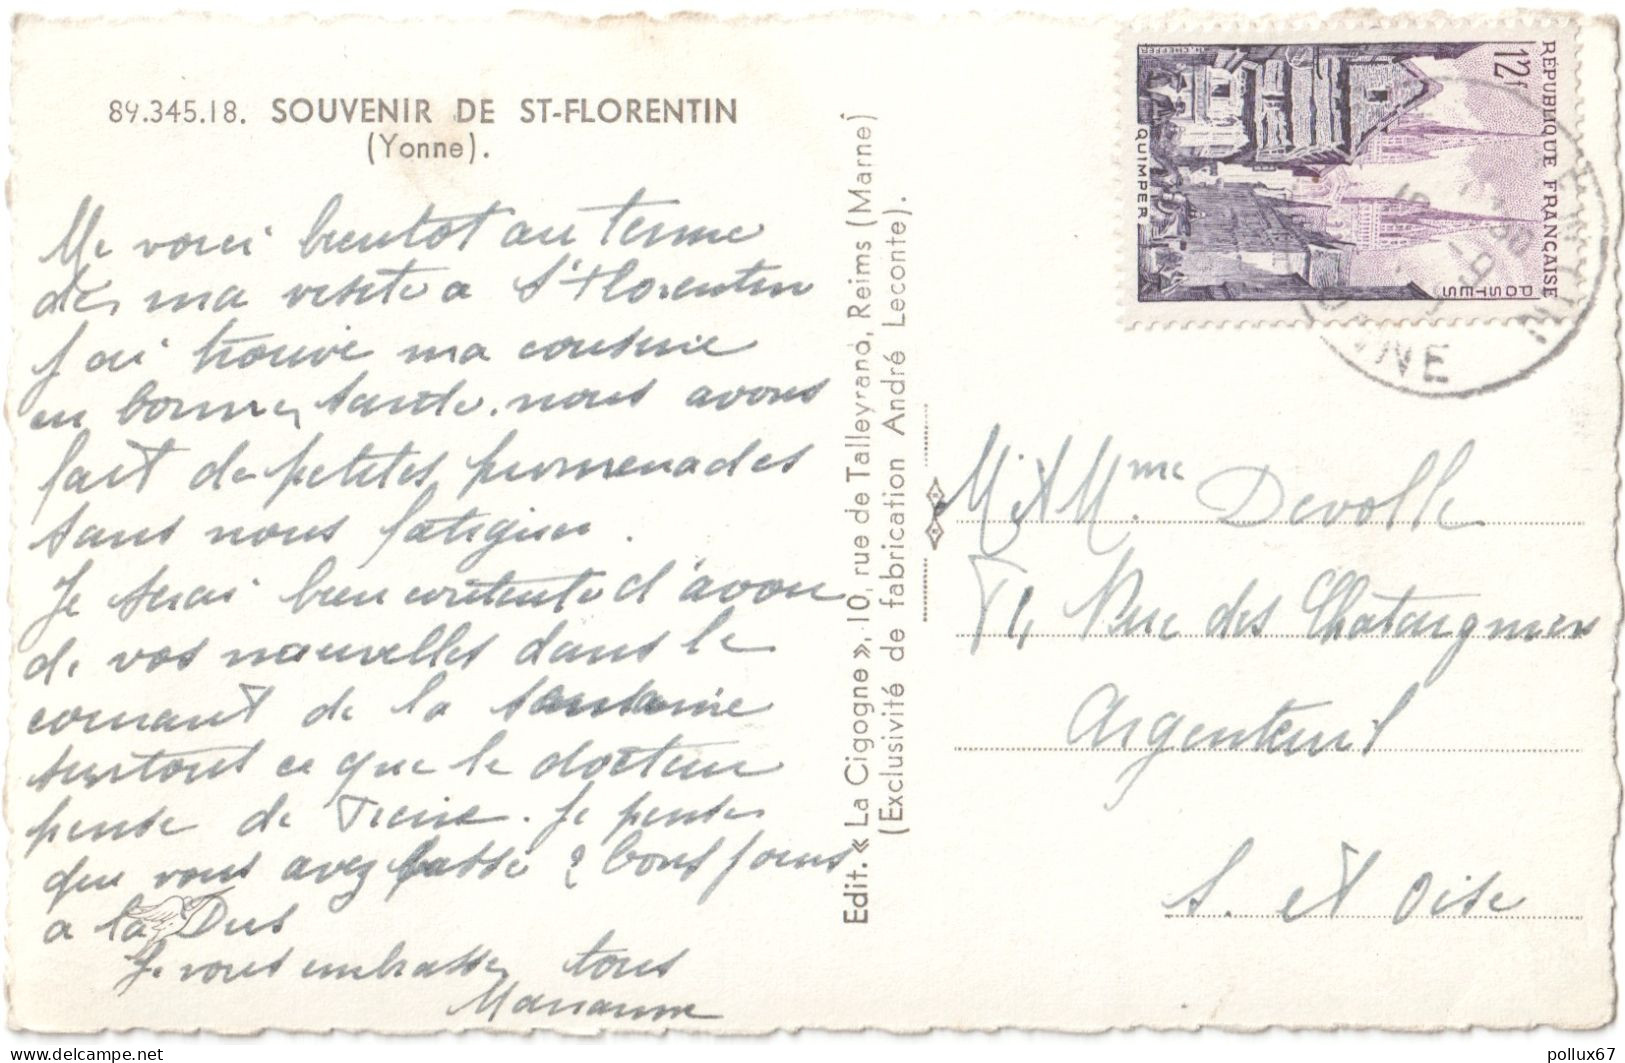 89.345.18. SOUVENIR DE ST-FLORENTIN
(Yonne).
Me voici bientot au terme
de ma visite a St Florentin
J ai trouvé ma cousine
en bonne, santé. nous avons
fait de petites promenades
sans nous fatiguer.
Je serai bien contente d'avoir
de vos nouvelles dans le
courant de la semaine
surtout ce que le docteur
pense de Pierre. Je pense
que vous avez passé 2 bons jours
a la
Je vous embrasse tous
Marianne
Edit. « La Cigogne », 10, rue de Talleyrand, Reims (Marne)
(Exclusivité de fabrication André Leconte).
RÉPUBLIQUE FRANÇAISE
12f
POSTES
QUIMPER
H. CHEFFER
YONNE
M et Mme Devolle
71, Rue des Chataigniers
Argenteuil
S. et Oise
delcampe.net
pollux67